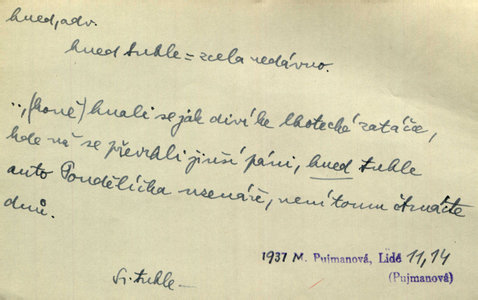 hned, adv.
hned tuhle = zcela nedávno.
„(koně) hnali se jak diví ke lhotecké zatáče,
kde už se převrhli jinší páni, hned tuhle
auto Pondělíčka uzenáře, není tomu čtrnácte
dnů.
1937 M. Pujmanová, Lidé 11,14
(Pujmanová)
Sr. tuhle –